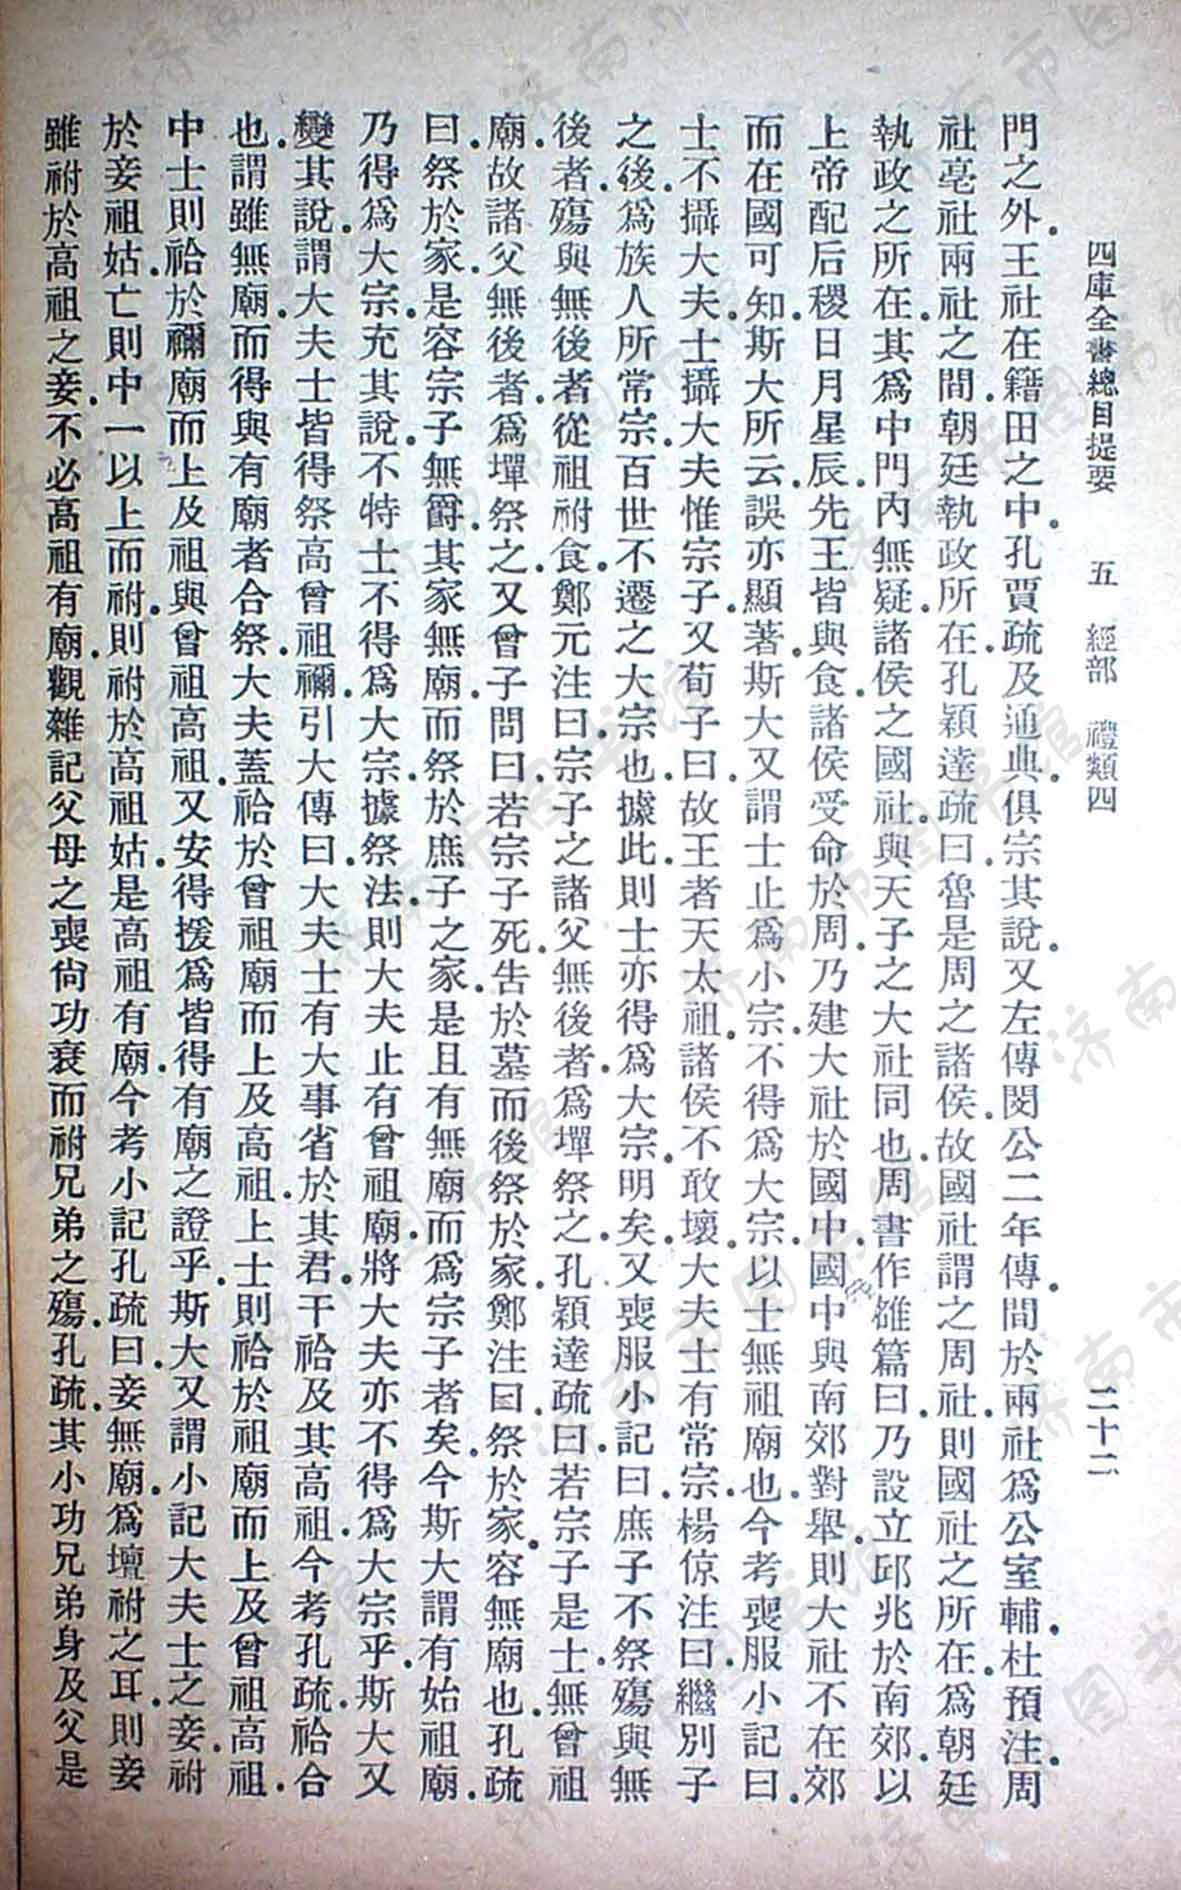 四庫全書總目提要　五　經部　禮類四　二十二
門之外．王社在籍田之中．孔賈疏及通典．俱宗其說．又左傳閔公二年傳．間於兩社爲公室輔．杜預注．周
社亳社兩社之間．朝廷執政所在．孔穎達疏曰．魯是周之諸侯．故國社謂之周社．則國社之所在．爲朝廷
執政之所在．其爲中門內無疑．諸侯之國社．與天子之大社同也．周書作雒篇曰．乃設立邱兆於南郊．以
上帝配后稷．日月星辰．先王皆與食．諸侯受命於周．乃建大社於國中．國中與南郊對舉．則大社不在郊
而在國可知．斯大所云．誤亦顯著．斯大又謂士止爲小宗．不得爲大宗．以士無祖廟也．今考喪服小記曰．
士不攝大夫．士攝大夫惟宗子．又荀子曰．故王者天太祖．諸侯不敢壞．大夫士有常宗．楊倞注曰．繼別子
之後．爲族人所常宗．百世不遷之大宗也．據此．則士亦得爲大宗明矣．又喪服小記曰．庶子不祭殤與無
後者．殤與無後者從祖祔食．鄭元注曰．宗子之諸父無後者．爲墠祭之．孔穎達疏曰．若宗子是士．無曾祖
廟．故諸父無後者．爲墠祭之．又曾子問曰．若宗子死．告於墓而後祭於家．鄭注曰．祭於家．容無廟也．孔疏
曰．祭於家．是容宗子無爵．其家無廟．而祭於庶子之家．是且有無廟而爲宗子者矣．今斯大謂有始祖廟．
乃得爲大宗．充其說．不特士不得爲大宗．據祭法．則大夫止有曾祖廟．將大夫亦不得爲大宗乎．斯大又
變其說．謂大夫士皆得祭高曾祖禰．引大傳曰．大夫士有大事．省於其君．干祫及其高祖．今考孔疏．祫合
也．謂雖無廟．而得與有廟者合祭．大夫蓋祫於曾祖廟而上及高祖．上士則祫於祖廟而上及曾祖高祖．
中士則祫於禰廟而上及祖與曾祖高祖．又安得援爲皆得有廟之證乎．斯大又謂小記大夫士之妾．祔
於妾祖姑．亡則中一以上而祔．則祔於高祖姑．是高祖有廟．今考小記孔疏曰．妾無廟．爲壇祔之耳．則妾
雖祔於高祖之妾．不必高祖有廟．觀雜記父母之喪尙功衰而祔兄弟之殤．孔疏．其小功兄弟身及父是